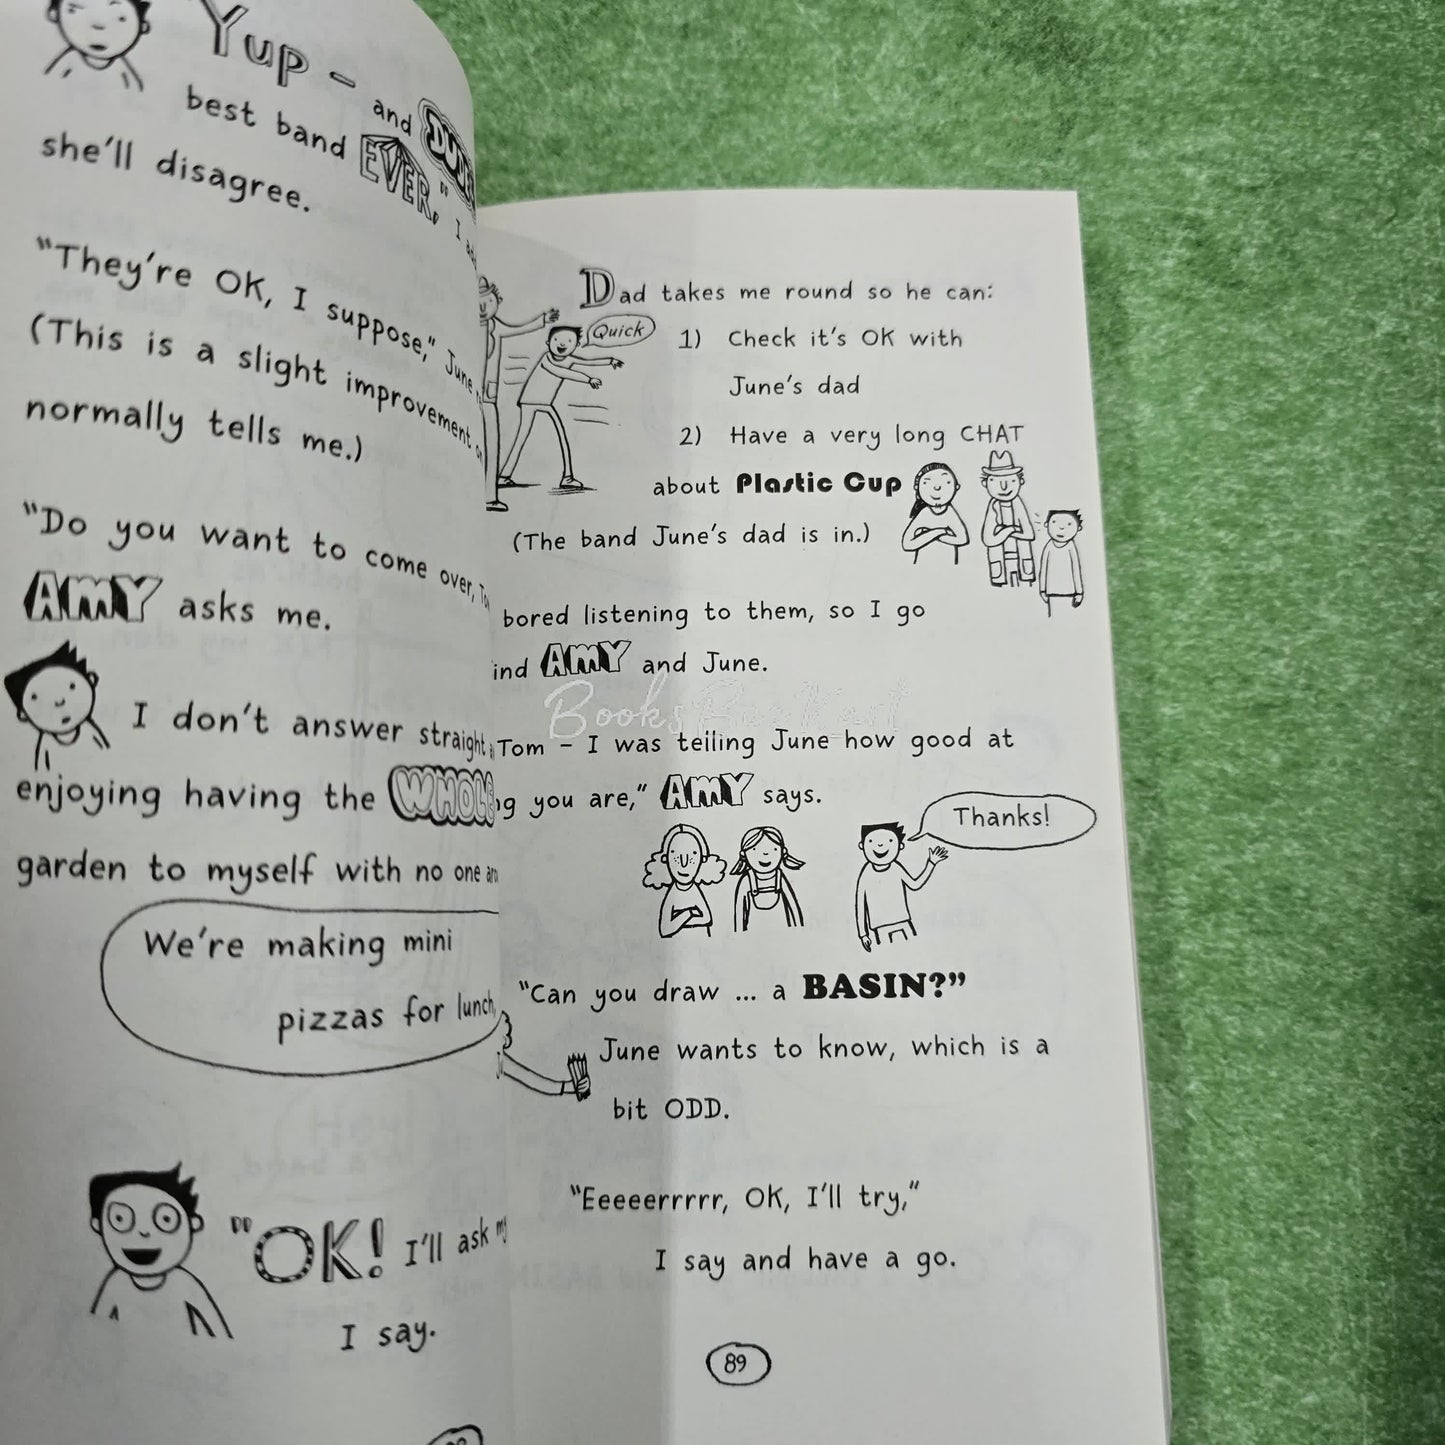 Yup - and DUDE
best band EVER," I
she'll disagree.
"They're OK, I suppose," June
(This is a slight improvement on
normally tells me.)
"Do you want to come over,
AMY asks me.
I don't answer straight
enjoying having the WHOLE
garden to myself with no one
We're making mini
pizzas for lunch,
"OK! I'll ask my
I say.
Dad takes me round so he can:
Quick
1) Check it's OK with
June's dad
2) Have a very long CHAT
about Plastic Cup
(The band June's dad is in.)
bored listening to them, so I go
AMY and June.
BooksBazKart
Tom - I was telling June how good at
you are," AMY says.
Thanks!
"Can you draw ... a BASIN?"
June wants to know, which is a
bit ODD.
"Eeeeerrrrr, OK, I'll try,"
I say and have a go.
89